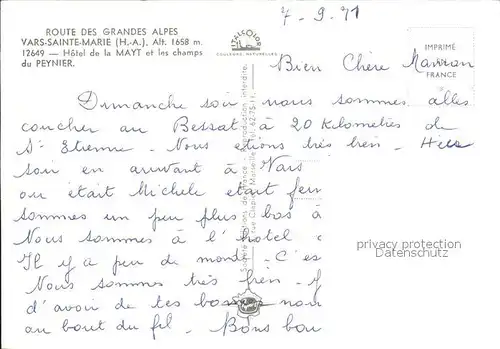 ROUTE DES GRANDES ALPES
VARS-SAINTE-MARIE (H.-A.). Alt. 1658 m.
12649 — Hôtel de la MAYT et les champs
du PEYNIER.
ITALCOLOR
COULEURS NATURELLES
7-9-71
IMPRIMÉ
FRANCE
Bien Chère Marraine
Dimanche soir nous sommes allés
coucher au Bessat à 20 Kilometres de
St Etienne - Nous etions très bien - Hier
soir en arrivant à Vars
ou était Michele etait fer
sommes un peu plus bas à
Nous sommes à l'hotel
Il y a peu de monde - C'es
Nous sommes très bien - J
d'avoir de tes bo nou
au bout du fil - Bons bai
privacy protection
Datenschutz